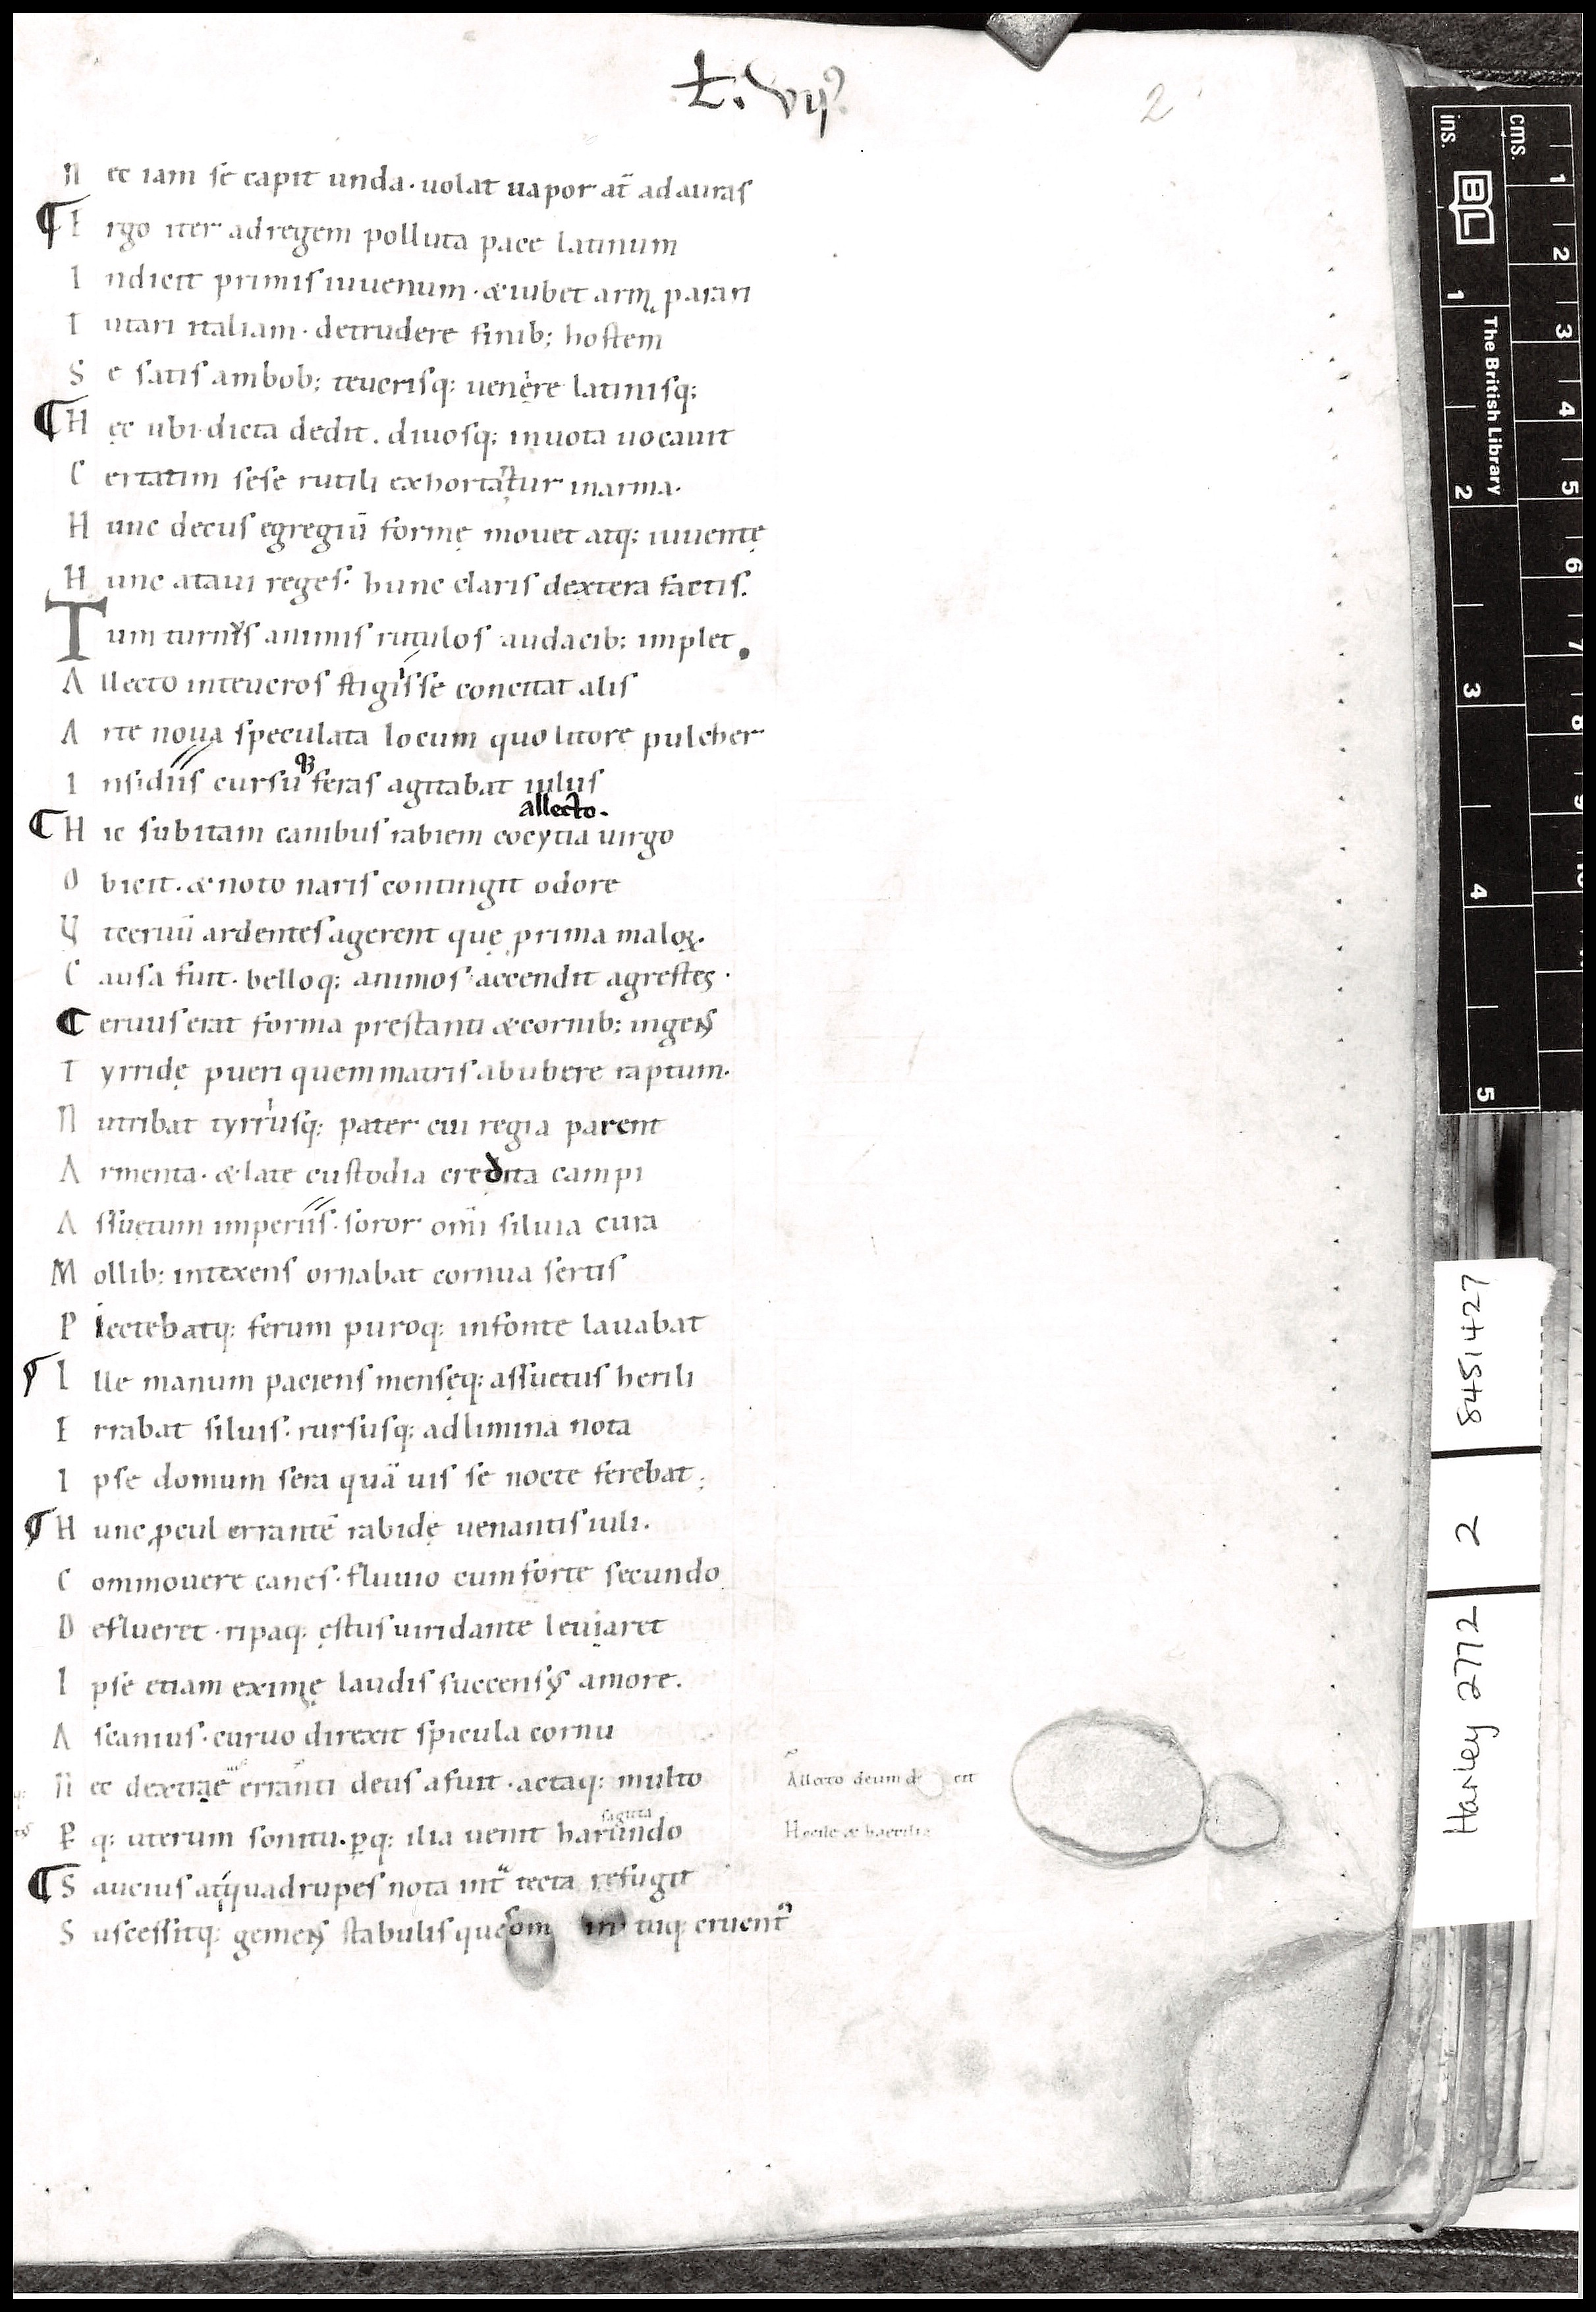 L. vijº
2
N ec iam se capit unda · uolat uapor at̄ ad auras
¶ E rgo iter ad regem polluta pace latinum
I ndicit primis iuuenum · & iubet arm̨ parari
T utari italiam · detrudere finib; hostem
S e satis ambob; teucrisq; uenere latinisq;
¶ H ęc ubi dicta dedit . diuosq; in uota uocauit
C ertatim sese rutili exhortatur in arma ·
H unc decus egregiū formę mouet atq; iuuentę
H unc ataui reges · hunc claris dextera factis .
T um turnus animis rutulos audacib; implet .
A llecto in teucros stigiis se concitat alis
A rte noua speculata locum quo litore pulcher
I nsidiis cursuqȝ feras agitabat iulus
allecto ·
¶ H ic subitam canibus rabiem cocytia uirgo
O bicit · & noto naris contingit odore
U t ceruū ardentes agerent quę prima maloꝝ ·
C ausa fuit · belloq; animos accendit agrestes ·
C eruus erat forma prestanti & cornib; ingens
T yrridę pueri quem matris ab ubere raptum ·
N utribat tyrriusq; pater cui regia parent
A rmenta · & late custodia credita campi
A ssuetum imperiis · soror omī siluia cura
M ollib; intexens ornabat cornua sertis
P lectebatq; ferum puroq; in fonte lauabat
¶ I lle manum paciens mensęq; assuetus herili
E rrabat siluis · rursusq; ad limina nota
I pse domum sera quā uis se nocte ferebat ;
¶ H unc ꝓcul errantē rabidę uenantis iuli .
C ommouere canes · fluuio cum forte secundo
D eflueret · ripaq; ęstus uiridante leuaret
I pse etiam eximię laudis succensus amore .
A scanius · curuo direxit spicula cornu
N ec dextrae erranti deus afuit · actaq; multo
Allecto deum
sagitta
P q; uterum sonitu · ꝑq; ilia uenit harundo
¶ S aucius at quadrupes nota int̄ tecta refugit
S uscessitq; gemens stabulis que cruent᷒
BL
The British Library
ins.
1
2
3
4
5
cms.
1
2
3
4
5
6
7
8
9
8451427
2
Harley 2772